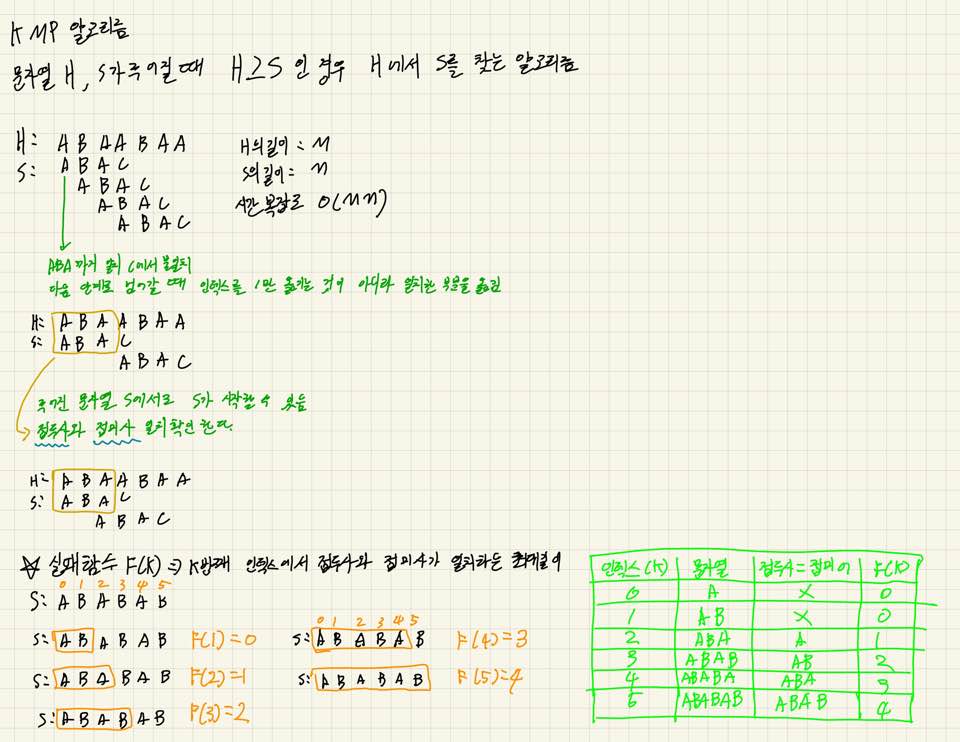 KMP 알고리즘
문자열 H, S가 주어질 때 H≥S 인 경우 H에서 S를 찾는 알고리즘
H: A B A A B A A
S: A B A C
A B A C
A B A C
A B A C
H의 길이 : M
S의 길이 : n
시간 복잡도 O(Mn)
ABA 까지 일치 C에서 불일치
다음 단계로 넘어갈 때 인덱스를 1만 옮기는 것이 아니라 일치한 부분을 옮김
H: A B A A B A A
S: A B A C
A B A C
주어진 문자열 S에서로 S가 시작할 수 있음
접두사와 접미사 일치 확인 한다.
H: A B A A B A A
S: A B A C
A B A C
☆ 실패함수 F(K) ⇒ K번째 인덱스에서 접두사와 접미사가 일치하는 최대길이
0 1 2 3 4 5
S: A B A B A B
S: A B A B A B F(1)=0
S: A B A B A B F(2)=1
S: A B A B A B F(3)=2
0 1 2 3 4 5
S: A B A B A B F(4)=3
S: A B A B A B F(5)=4
인덱스(K) 문자열 접두사=접미어 F(K)
0 A X 0
1 AB X 0
2 ABA A 1
3 ABAB AB 2
4 ABABA ABA 3
5 ABABAB ABAB 4